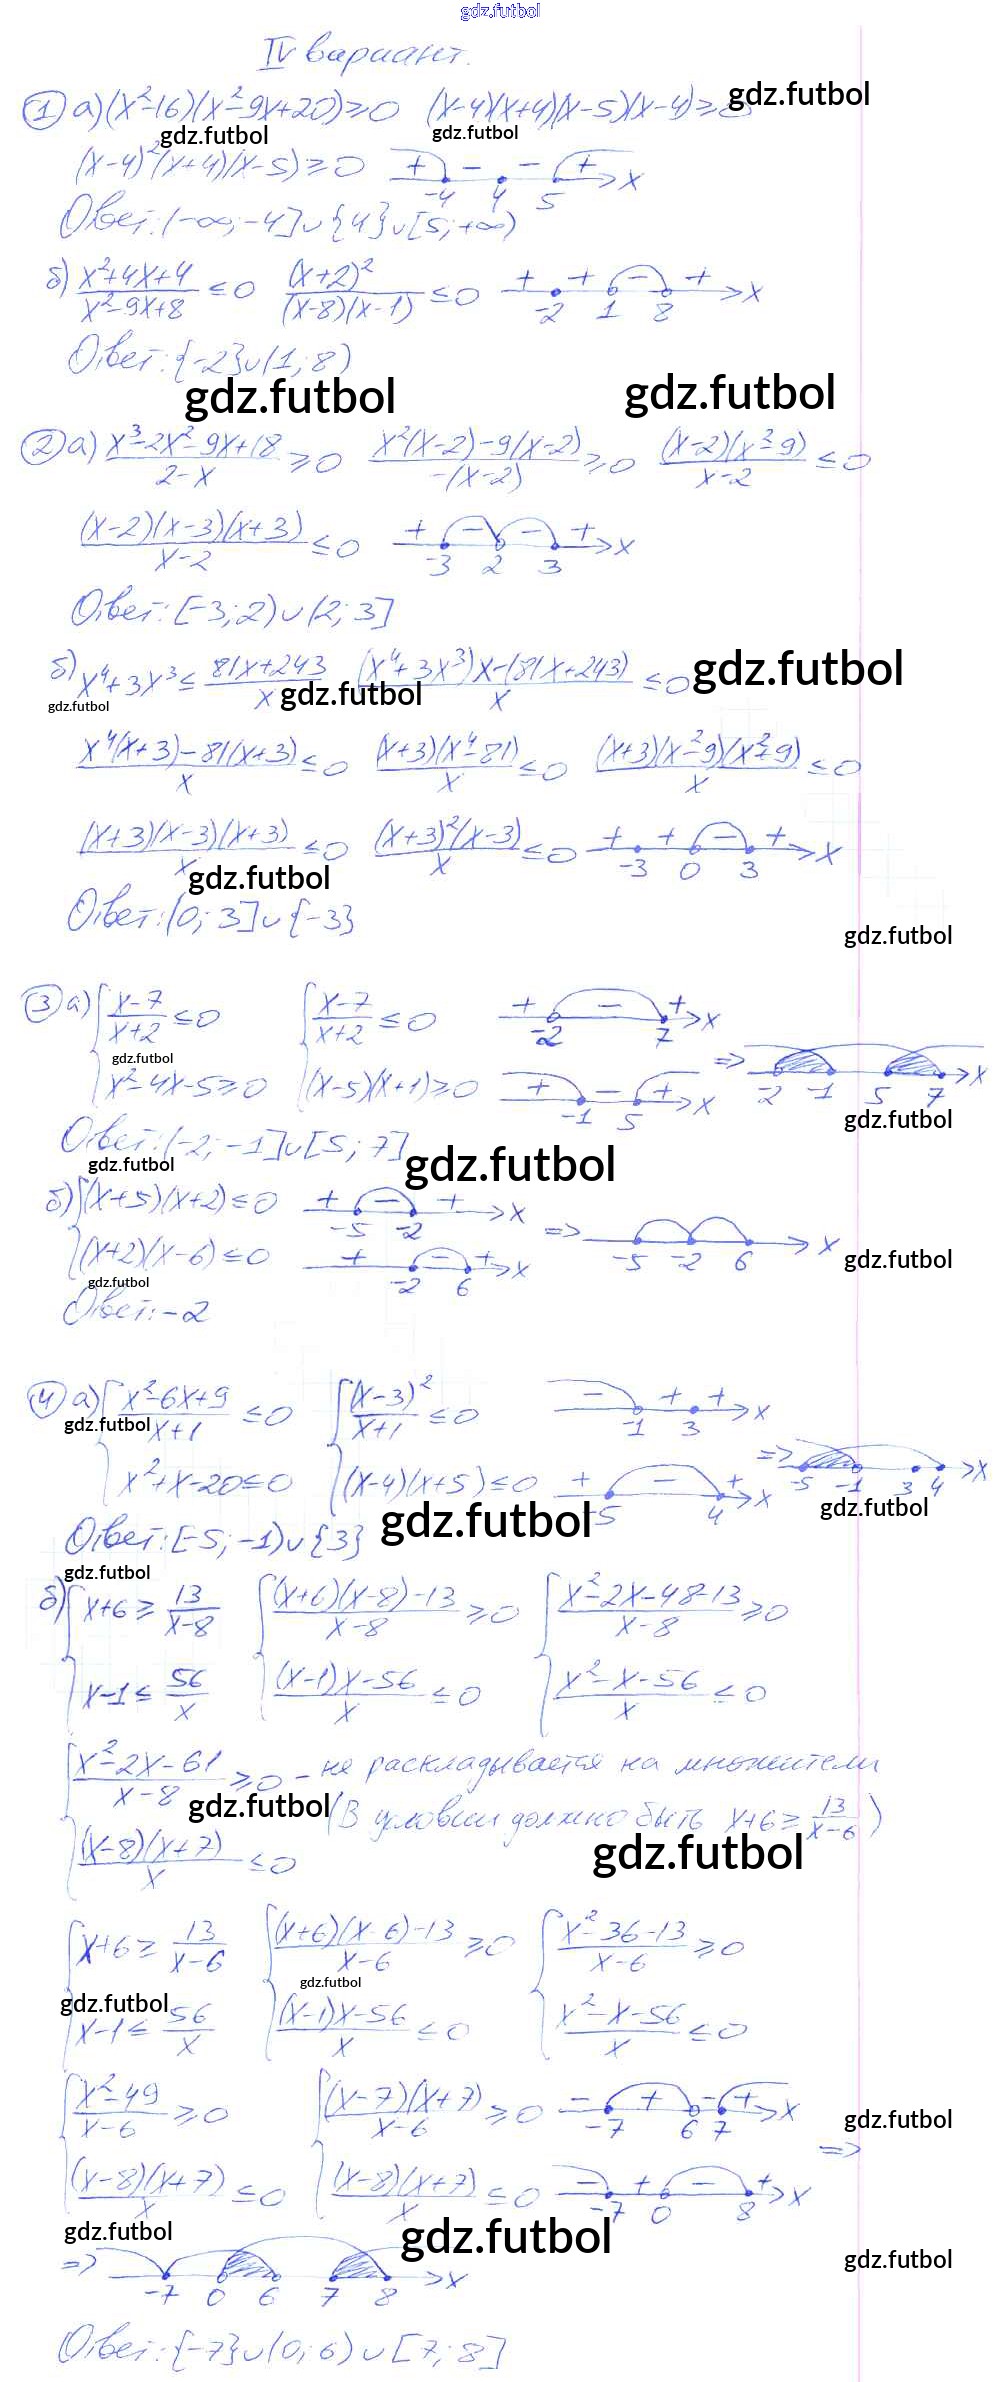 gdz.futbol
IV вариант.
① а) (x²-16)(x²-9x+20)≥0 (x-4)(x+4)(x-5)(x-4)≥0 gdz.futbol
gdz.futbol gdz.futbol
(x-4)²(x+4)(x-5)≥0 + - - + -4 4 5 x
Ответ: (-∞;-4]∪{4}∪[5;+∞)
б) (x²+4x+4)/(x²-9x+8) ≤0 (x+2)²/((x-8)(x-1)) ≤0 + + - + -2 1 8 x
Ответ: {-2}∪(1;8)
gdz.futbol gdz.futbol
② а) (x³-2x²-9x+18)/(2-x) ≥0 (x²(x-2)-9(x-2))/(-(x-2)) ≥0 ((x-2)(x²-9))/(x-2) ≤0
((x-2)(x-3)(x+3))/(x-2) ≤0 + - - + -3 2 3 x
Ответ: [-3;2)∪(2;3]
б) x⁴+3x³ ≤ (81x+243)/x ((x⁴+3x³)x-(81x+243))/x ≤0 gdz.futbol
gdz.futbol gdz.futbol
(x⁴(x+3)-81(x+3))/x ≤0 ((x+3)(x⁴-81))/x ≤0 ((x+3)(x²-9)(x²+9))/x ≤0
((x+3)(x-3)(x+3))/x ≤0 ((x+3)²(x-3))/x ≤0 + + - + -3 0 3 x
gdz.futbol
Ответ: (0;3]∪{-3}
gdz.futbol
③ а) { (x-7)/(x+2) ≤0 { (x-7)/(x+2) ≤0 + - + -2 7 x
gdz.futbol
x²-4x-5≥0 (x-5)(x+1)≥0 + - + -1 5 x => -2 -1 5 7 x
gdz.futbol
Ответ: (-2;-1]∪[5;7]
gdz.futbol gdz.futbol
б) { (x+5)(x+2)≤0 + - + -5 -2 x
(x+2)(x-6)≤0 + - + -2 6 x => -5 -2 6 x
gdz.futbol gdz.futbol
Ответ: -2
④ а) { (x²-6x+9)/(x+1) ≤0 { (x-3)²/(x+1) ≤0 - + + -1 3 x
gdz.futbol
x²+x-20≤0 (x-4)(x+5)≤0 + - + -5 4 x => -5 -1 3 4 x
gdz.futbol gdz.futbol
Ответ: [-5;-1)∪{3}
gdz.futbol
б) { x+6 ≥ 13/(x-8) { ((x+6)(x-8)-13)/(x-8) ≥0 { (x²-2x-48-13)/(x-8) ≥0
x-1 ≤ 56/x ((x-1)x-56)/x ≤0 (x²-x-56)/x ≤0
{ (x²-2x-61)/(x-8) ≥0 - не раскладывается на множители
gdz.futbol (В условии должно быть x+6 ≥ 13/(x-6))
((x-8)(x+7))/x ≤0 gdz.futbol
{ x+6 ≥ 13/(x-6) { ((x+6)(x-6)-13)/(x-6) ≥0 { (x²-36-13)/(x-6) ≥0
gdz.futbol gdz.futbol
x-1 ≤ 56/x ((x-1)x-56)/x ≤0 (x²-x-56)/x ≤0
{ (x²-49)/(x-6) ≥0 { ((x-7)(x+7))/(x-6) ≥0 - + - + -7 6 7 x
gdz.futbol
((x-8)(x+7))/x ≤0 ((x-8)(x+7))/x ≤0 - + - + -7 0 8 x =>
gdz.futbol gdz.futbol gdz.futbol
=> -7 0 6 7 8 x
Ответ: {-7}∪(0;6)∪[7;8]